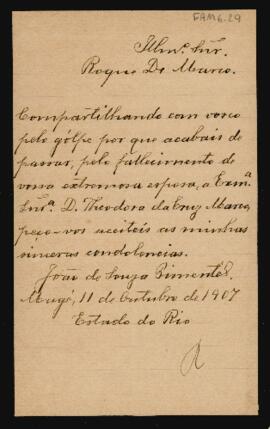 FAM6.29
Illmº. Snr.
Roque De Marco.
Compartilhando com vosco
pelo gólpe por que acabais de
passar, pelo fallecimento de
vossa extremosa esposa, a Exmª.
Snrª. D. Theodora da Cruz Marco,
peço-vos acciteis as minhas
sinceras condolencias.
João de Souza Pimentel.
Magé, 11 de Outubro de 1907
Estado do Rio